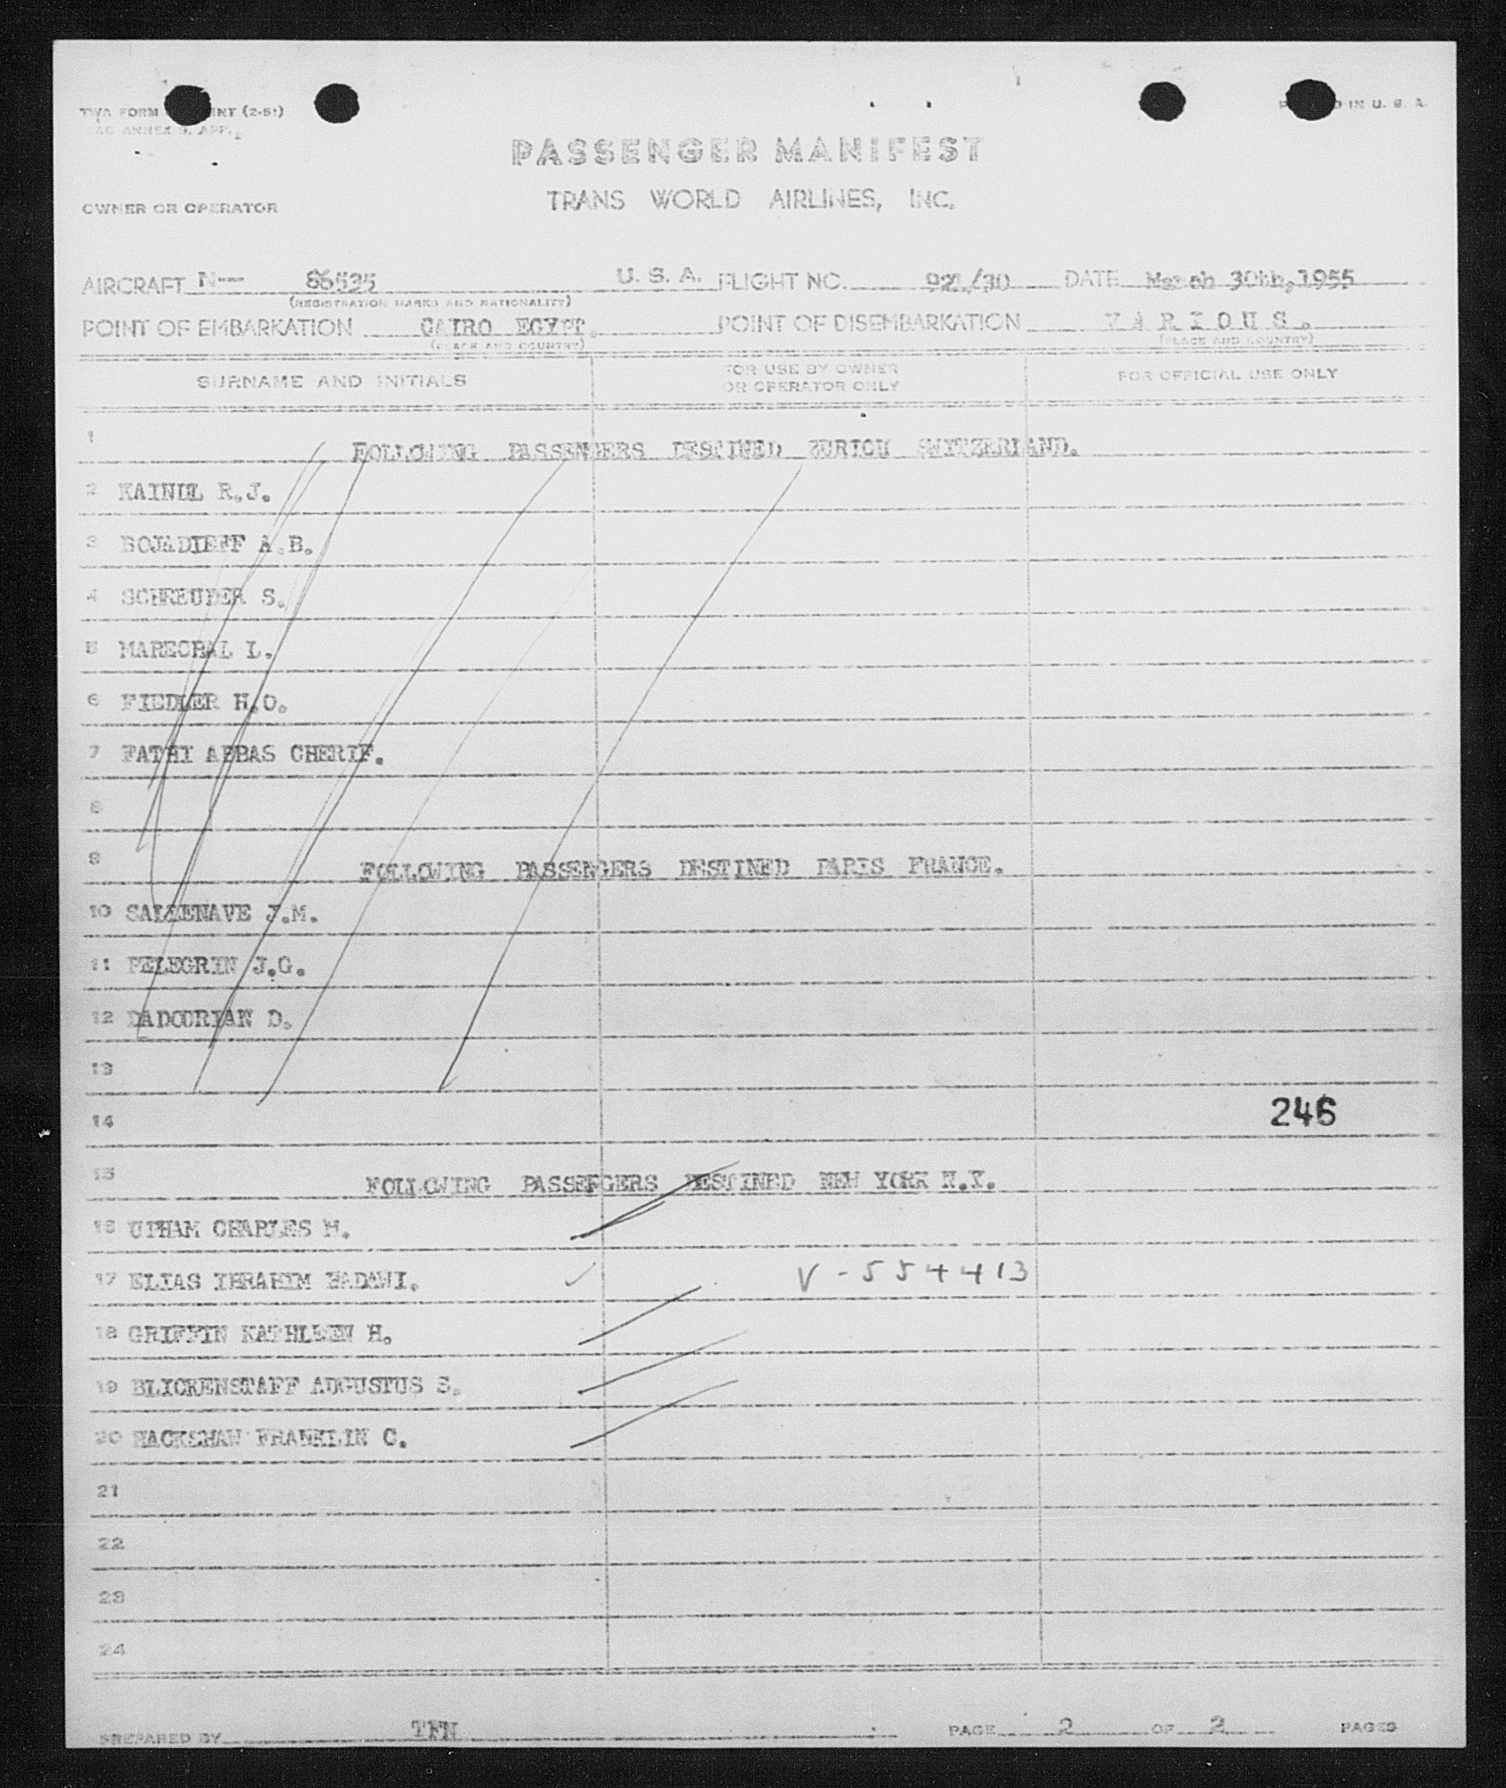 TWA FORM INT (2-51)
ANNEX 9, APP.
IN U. S. A.
PASSENGER MANIFEST
TRANS WORLD AIRLINES, INC.
OWNER OR OPERATOR
AIRCRAFT N-- 86535 U. S. A. FLIGHT NO. 921/30 DATE March 30th, 1955
(REGISTRATION MARKS AND NATIONALITY)
POINT OF EMBARKATION CAIRO EGYPT. POINT OF DISEMBARKATION V A R I O U S .
(PLACE AND COUNTRY) (PLACE AND COUNTRY)
SURNAME AND INITIALS FOR USE BY OWNER OR OPERATOR ONLY FOR OFFICIAL USE ONLY
1 FOLLOWING PASSENGERS DESTINED ZURICH SWITZERLAND.
2 KAINDL R.J.
3 BOJADIEFF A.B.
4 SCHREUDER S.
5 MARECHAL L.
6 FIEDLER H.O.
7 FATHI ABBAS CHERIF.
8
9 FOLLOWING PASSENGERS DESTINED PARIS FRANCE.
10 SALZENAVE J.M.
11 PELEGRIN J.G.
12 DADOURIAN D.
13
14 246
15 FOLLOWING PASSENGERS DESTINED NEW YORK N.Y.
16 UPHAM CHARLES M.
17 ELIAS IBRAHIM BADAWI. ✓ V-554413
18 GRIFFIN KATHLEEN H.
19 BLICKENSTAFF AUGUSTUS S.
20 HACKSHAW FRANKLIN C.
21
22
23
24
PREPARED BY TFN PAGE 2 OF 2 PAGES